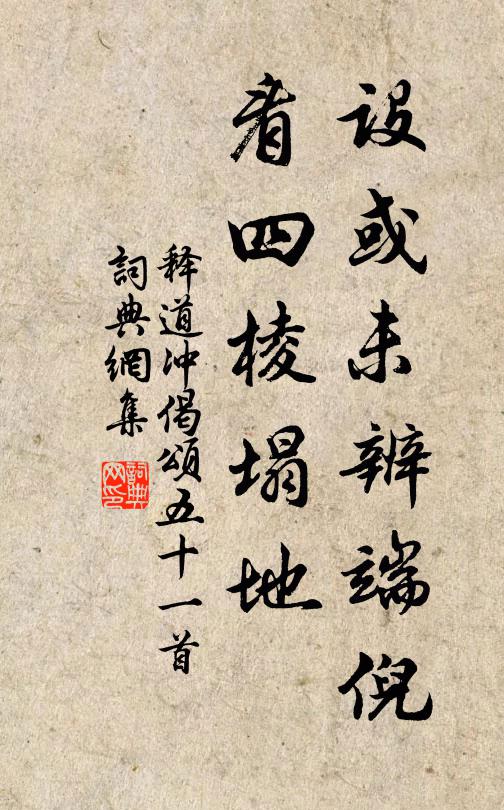 设或未辨端倪
看四棱塌地
释道冲偈颂五十一首
詞典網集
詞典網印